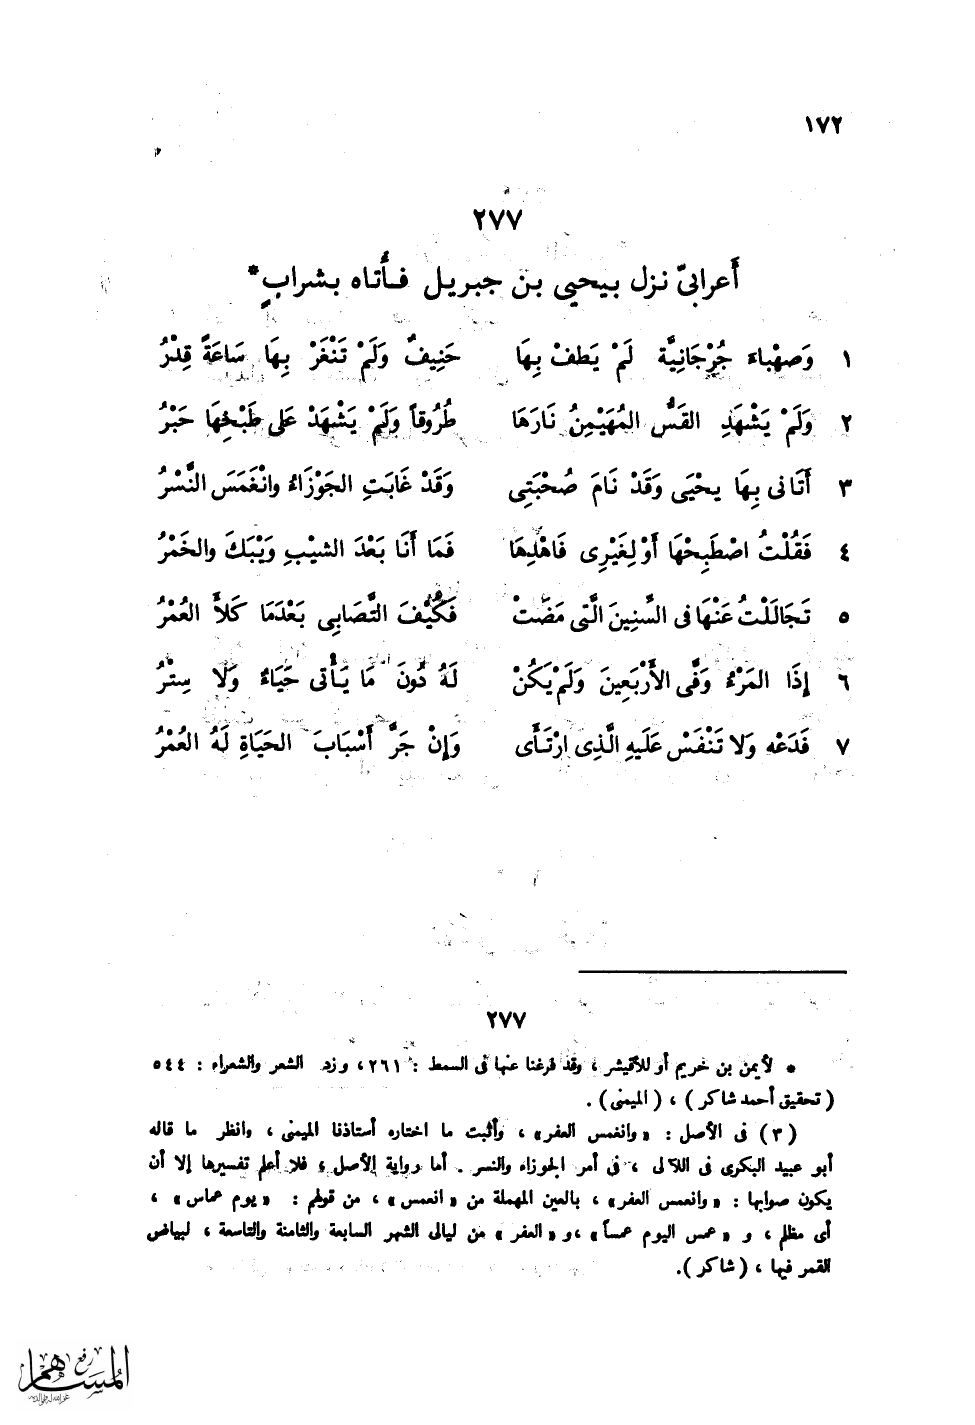 ١٧٢
٢٧٧
أعرابىّ نزل بيحيى بن جبريل فأتاه بشرابٍ*
١ وَصهْباءَ جُرْجَانِيَّة لَمْ يَطفْ بِهَا حَنِيفٌ وَلَمْ تَنْغَرْ بِهَا سَاعَةً قِدْرُ
٢ وَلَمْ يَشْهَدِ القَسُّ المُهَيْمِنُ نَارَهَا طُرُوقاً وَلَمْ يَشْهَدْ عَلى طَبْخِهَا حَبْرُ
٣ أَتَانى بِهَا يحْيَى وَقَدْ نَامَ صُحْبَتِى وَقَدْ غَابَتِ الجَوْزَاءُ وانْغَمَسَ النَّسْرُ
٤ فَقُلْتُ اصْطَبِحْهَا أَوْ لِغَيْرِى فَاهْدِهَا فَمَا أَنَا بَعْدَ الشيْبِ وَيْبَكَ والخَمْرُ
٥ تَجَالَلْتُ عَنْهَا فى السِّنِينَ الَّتِى مَضَتْ فَكَيْفَ التَّصَابِى بَعْدَمَا كَلأَ العُمْرُ
٦ إِذَا المَرْءُ وَفَّى الأَرْبَعِينَ وَلَمْ يَكُنْ لَهُ دُونَ مَا يَأْتى حَيَاءٌ وَلَا سِتْرُ
٧ فَدَعْه وَلا تَنْفَسْ عَلَيهِ الَّذِى ارْتَأَى وَإِنْ جَرَّ أَسْبَابَ الحَيَاةِ لَهُ العُمْرُ
٢٧٧
* لأيمن بن خريم أو للأقيشر ، وقد فرغنا عنها فى السمط : ٢٦١ ، وزد الشعر والشعراء : ٥٤٤
( تحقيق أحمد شاكر ) ، ( الميمنى ) .
( ٣ ) فى الأصل : « وانغمس العفر » ، وأثبت ما اختاره أستاذنا الميمنى ، وانظر ما قاله
أبو عبيد البكرى فى اللآلى ، فى أمر الجوزاء والنسر . أما رواية الأصل ، فلا أعلم تفسيرها إلا أن
يكون صوابها : « وانعمس العفر » ، بالعين المهملة من « انعمس » ، من قولهم : « يوم عماس » ،
أى مظلم ، و « عمس اليوم عمساً » ، و « العفر » من ليالى الشهر السابعة والثامنة والتاسعة ، لبياض
القمر فيها ، ( شاكر ) .
رفع
المساهم